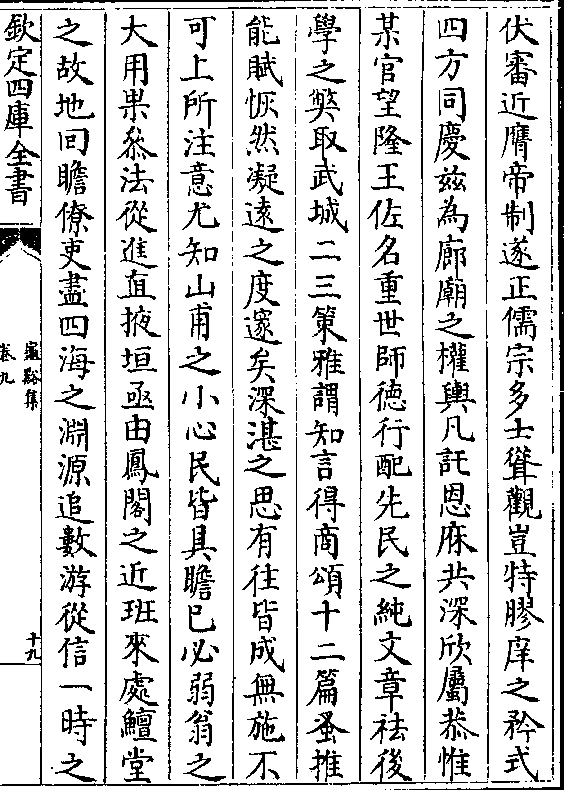 伏審近膺帝制遂正儒宗多士聳觀豈特膠庠之矜式
四方同慶兹為廊廟之權輿凡託恩庥共深欣屬恭惟
某官望隆王佐名重世師德行配先民之純文章祛後
學之弊取武城二三策雅謂知言得商頌十二篇蚤推
能賦恢然凝逺之度邃矣深湛之思有往皆成無施不
可上所注意尤知山甫之小心民皆具瞻已必弱翁之
大用果叅法從進直掖垣亟由鳳閣之近班來處鱣堂
之故地回瞻僚吏盡四海之淵源追數游從信一時之
欽定四庫全書
龜谿集
卷九
十九